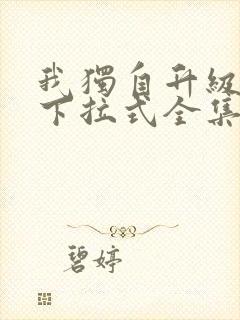 我獨自升級
下拉式全集
碧婷